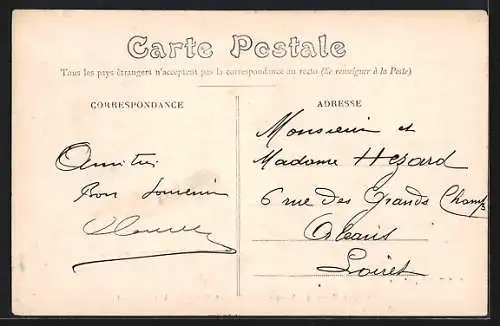 Carte Postale
Tous les pays étrangers n'acceptent pas la correspondance au recto (Se renseigner à la Poste)
CORRESPONDANCE
ADRESSE
Bon Souvenir
Monsieur et
Madame Hezard
6 rue des Grands Champs
Orleans
Loiret